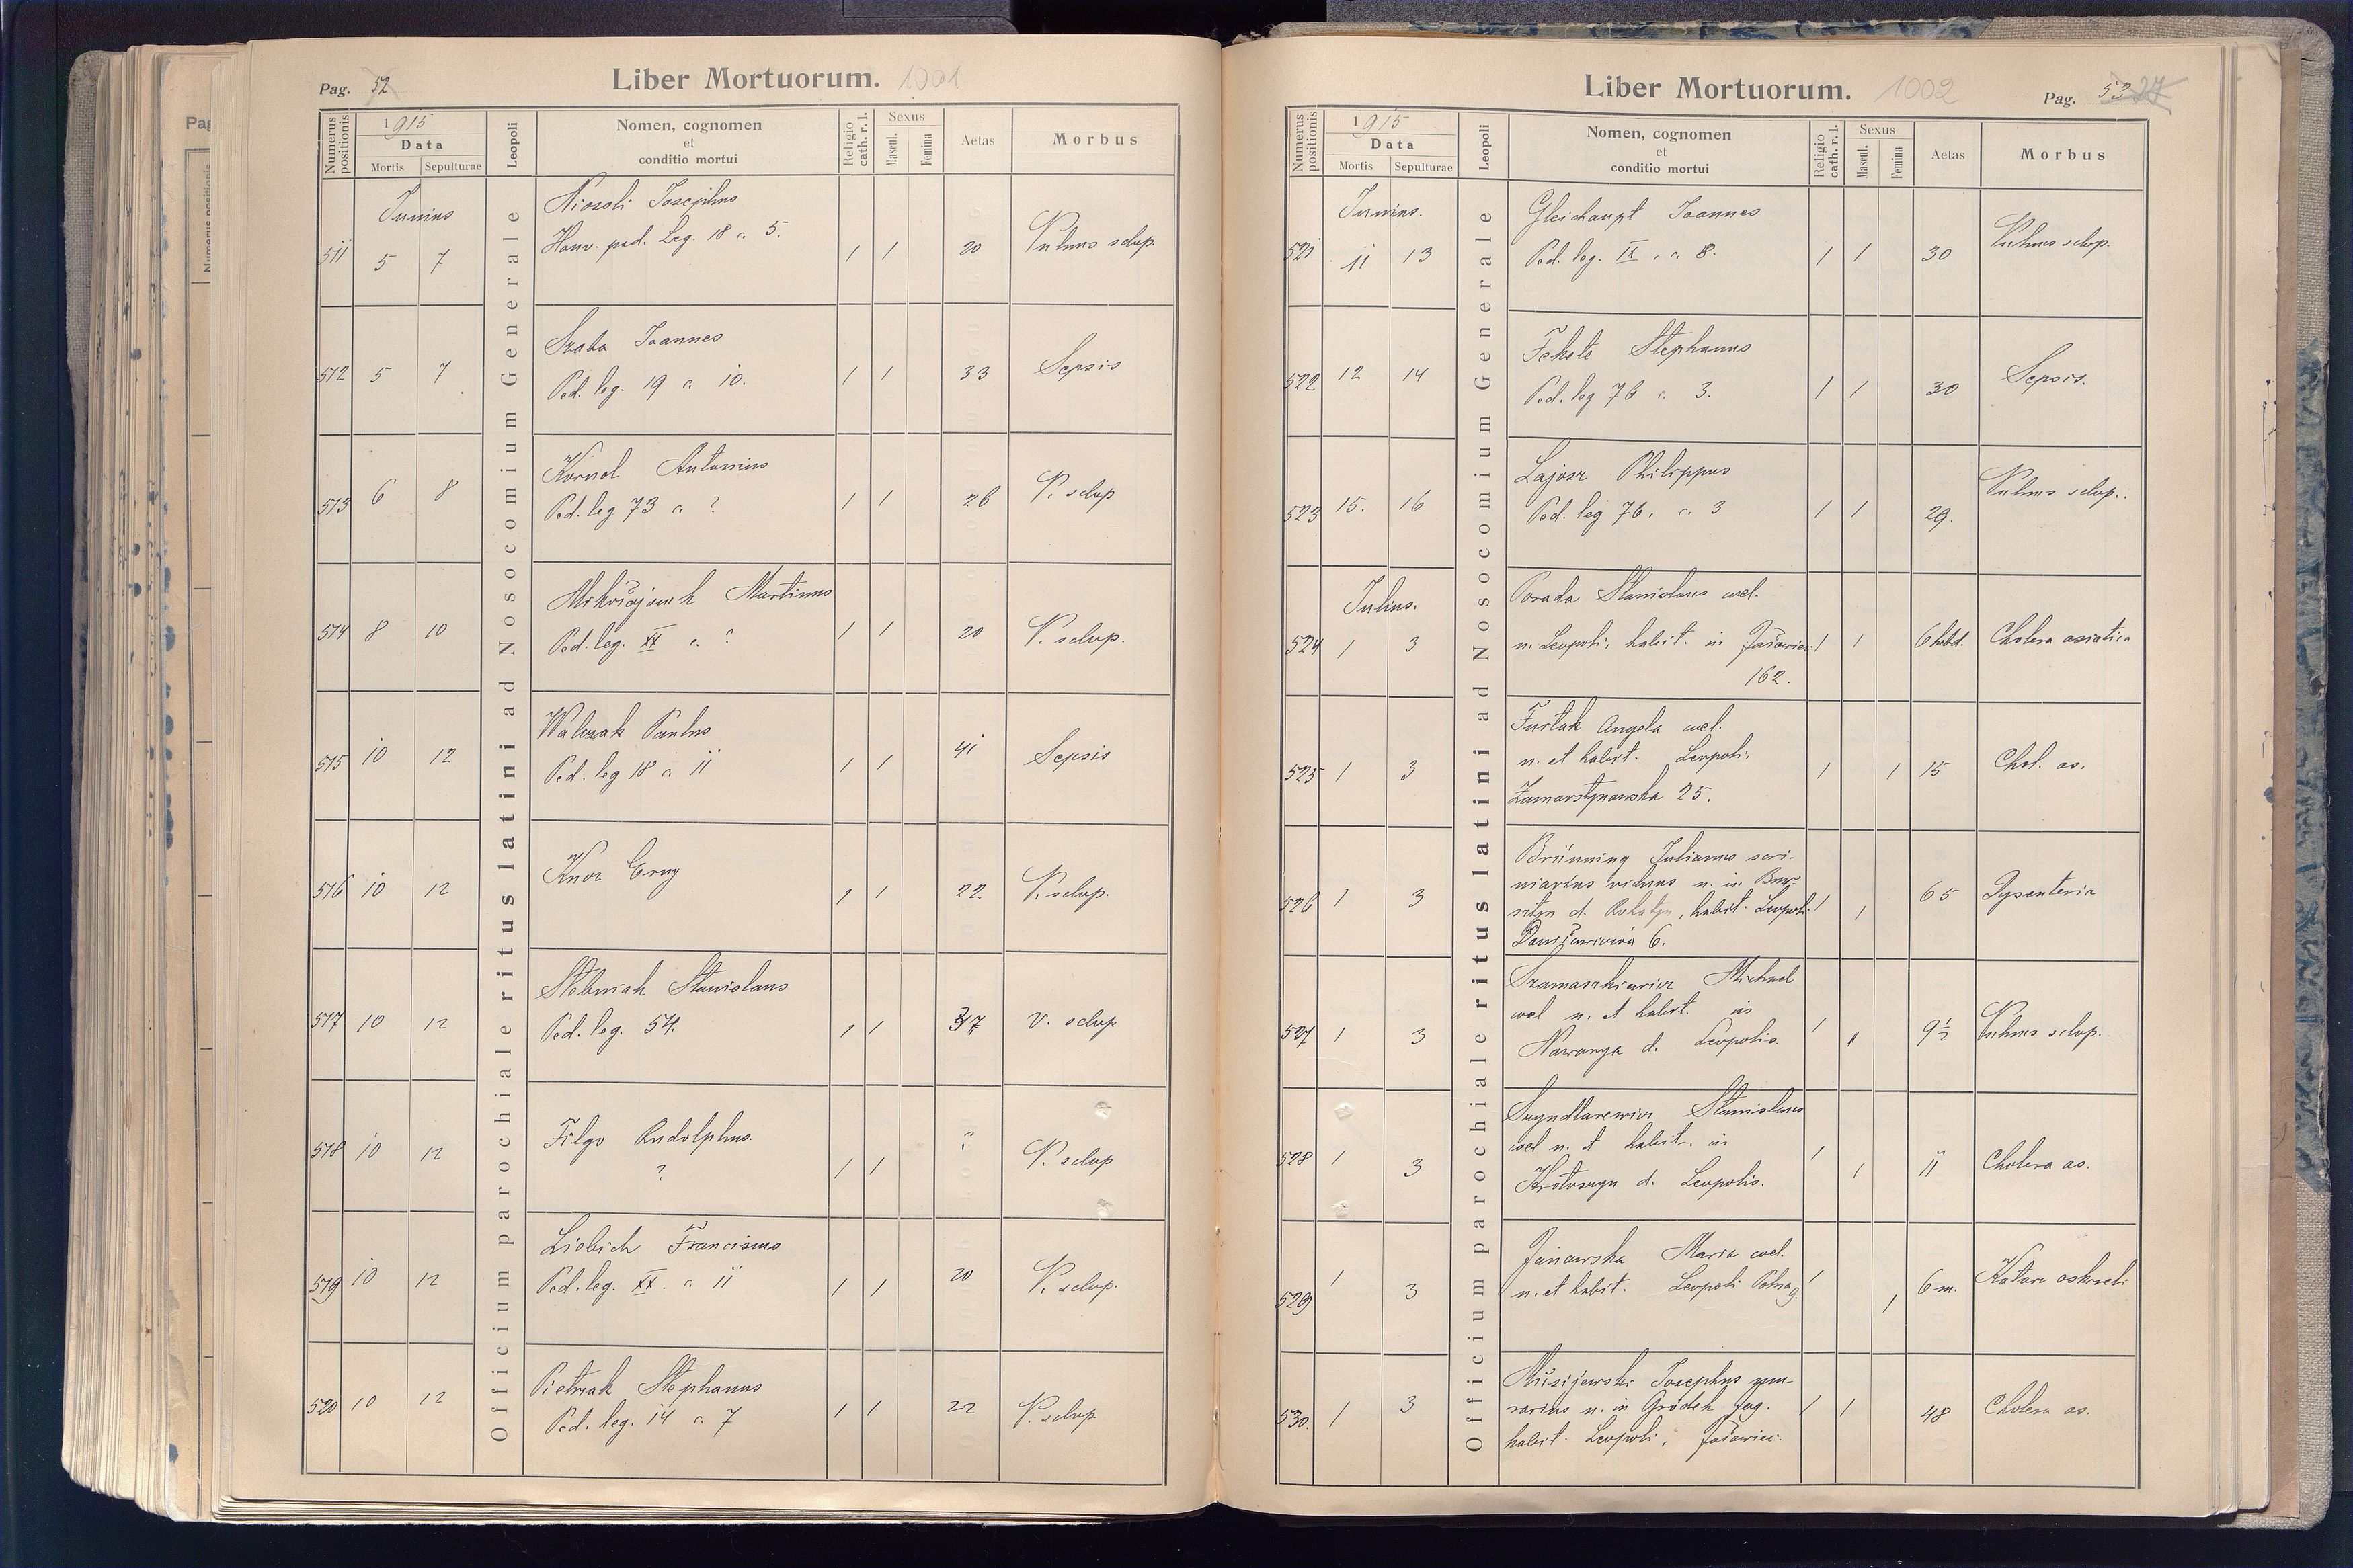 Pag. 52
Liber Mortuorum. 1001
Numerus positionis
1915
Data
Mortis
Sepulturae
Leopoli
Nomen, cognomen
et
conditio mortui
Religio
cath. r. l.
Sexus
Mascul.
Femina
Aetas
Morbus
Officium parochiale ritus latini ad Nosocomium Generale
Junius
Josephus
511 5 7 Honv. ped. Leg. 18 c. 5. 1 1 20 Vulnus sclop.
Szabo Joannes
512 5 7 Ped. leg. 19 c. 10. 1 1 33 Sepsis
Kornel Antonius
513 6 8 Ped. leg 73 c. ? 1 1 26 V. sclop
Martinus
514 8 10 Ped. leg. XX c. ? 1 1 20 V. sclop.
Walczak Paulus
515 10 12 Ped. leg 18 c. 11 1 1 41 Sepsis
516 10 12 Knor 1 1 22 V. sclop.
Stebniak Stanislaus
517 10 12 Ped. leg. 54. 1 1 37 V. sclop
Filgo Rudolphus.
518 10 12 ? 1 1 ? V. sclop
Liebich Franciscus
519 10 12 Ped. leg. XX. c. 11 1 1 20 V. sclop.
Pietrzak Stephanus
520 10 12 Ped. leg. 14 c. 7 1 1 22 V. sclop
Liber Mortuorum. 1002
Pag. 53
Numerus positionis
1915
Data
Mortis
Sepulturae
Leopoli
Nomen, cognomen
et
conditio mortui
Religio
cath. r. l.
Sexus
Mascul.
Femina
Aetas
Morbus
Officium parochiale ritus latini ad Nosocomium Generale
Junius.
Gleichaupt Joannes
521 11 13 Ped. leg. IX, c. 8. 1 1 30 Vulnus sclop.
Fekete Stephanus
522 12 14 Ped. leg 76 c. 3. 1 1 30 Sepsis.
Lajosz Philippus
523 15. 16 Ped. leg 76. c. 3 1 1 29. Vulnus sclop.
Julius.
Porada Stanislaus cael.
524 1 3 n. Leopoli, habit. in 1 1 6 hebd. Cholera asiatica
162.
Furtak Angela cael.
n. et habit. Leopoli.
525 1 3 Zamarstynowska 25. 1 1 15 Chol. as.
Brünning Julianus scri-
niarius viduus n. in Bur-
526 1 3 sztyn d. Rohatyn, habit. Leopoli 1 1 65 Dysenteria
6.
Szamaszkiewicz Michael
cael n. et habit. in
527 1 3 Nawarya d. Leopolis. 1 1 9½ Vulnus sclop.
Szyndlarewicz Stanislaus
cael n. et habit. in
528 1 3 Krotoszyn d. Leopolis. 1 1 11 Cholera as.
Janowska Maria cael.
529 1 3 n. et habit. Leopoli Polna 9. 1 1 6 m. Katar oskrzeli
Josephus
n. in Gródek Jag.
530. 1 3 habit. Leopoli, 1 1 48 Cholera as.